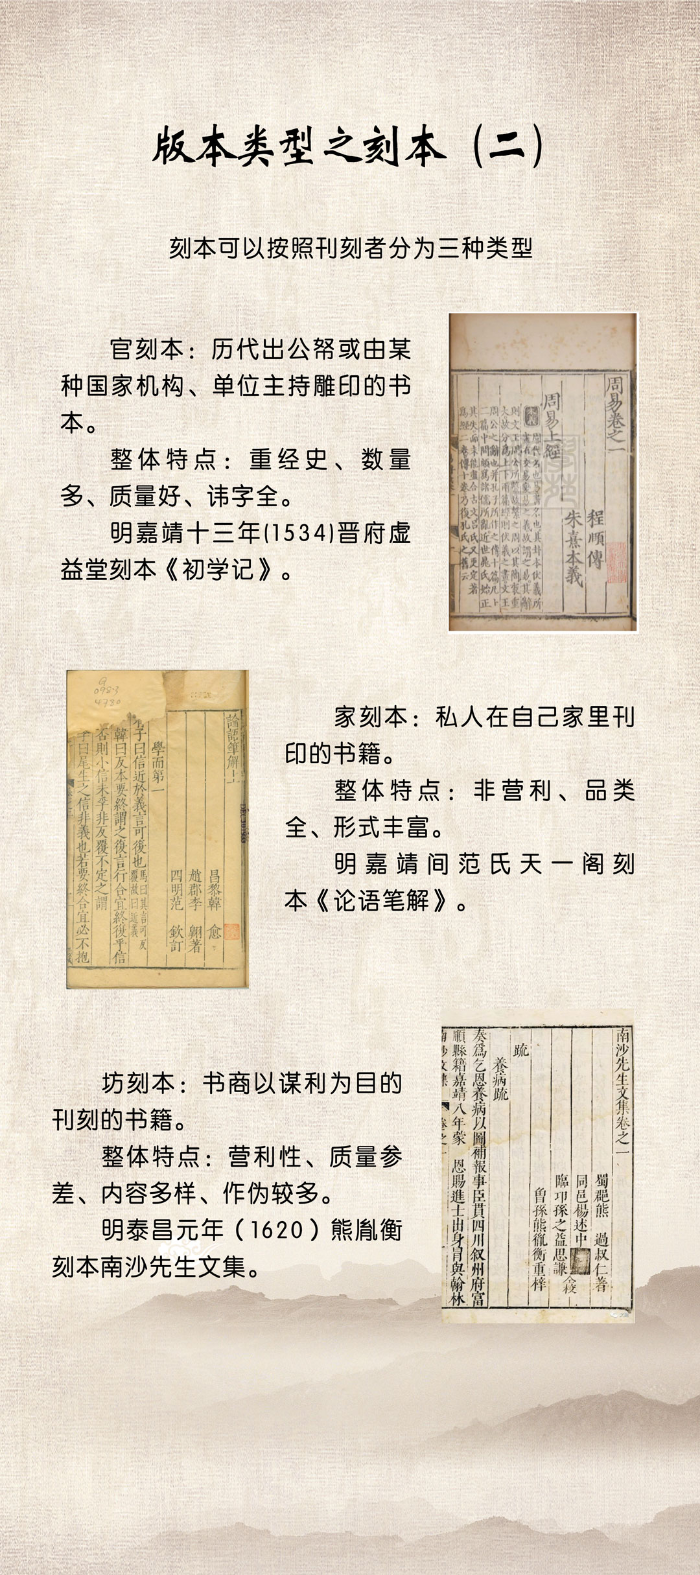 版本类型之刻本（二）
刻本可以按照刊刻者分为三种类型
官刻本：历代出公帑或由某
种国家机构、单位主持雕印的书
本。
整体特点：重经史、数量
多、质量好、讳字全。
明嘉靖十三年(1534)晋府虚
益堂刻本《初学记》。
周易卷之一
程頤傳
朱熹本義
周易上經
家刻本：私人在自己家里刊
印的书籍。
整体特点：非营利、品类
全、形式丰富。
明嘉靖间范氏天一阁刻
本《论语笔解》。
論語筆解上
昌黎韓 愈
趙郡李 翱著
四明范 欽訂
學而第一
子曰信近於義言可復也
韓曰反本要終謂之復言行合宜終復乎信
否則小信未孚非反覆不定之謂
坊刻本：书商以谋利为目的
刊刻的书籍。
整体特点：营利性、质量参
差、内容多样、作伪较多。
明泰昌元年（1620）熊胤衡
刻本南沙先生文集。
南沙先生文集卷之一
蜀郡熊 過叔仁著
同邑楊述中
臨卭孫之益思謙
曾孫熊胤衡重梓
疏
養病疏
奏爲乞恩養病以圖補報事臣貫四川叙州府富
順縣籍嘉靖八年蒙 恩賜進士出身冐與翰林